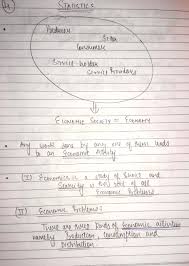 STATISTICS
Producer
Seller
Consumer
Service holder
Service Providers
⇓
Economic Society = Economy
• Any work done by any one of them leads
to an Economic Activity
(I) Economics is a study of
Scarcity is the root of all
Economic Problems.
(II) Economic Problems:
There are three kinds of Economic activities
namely Production, Consumption and
Distribution.